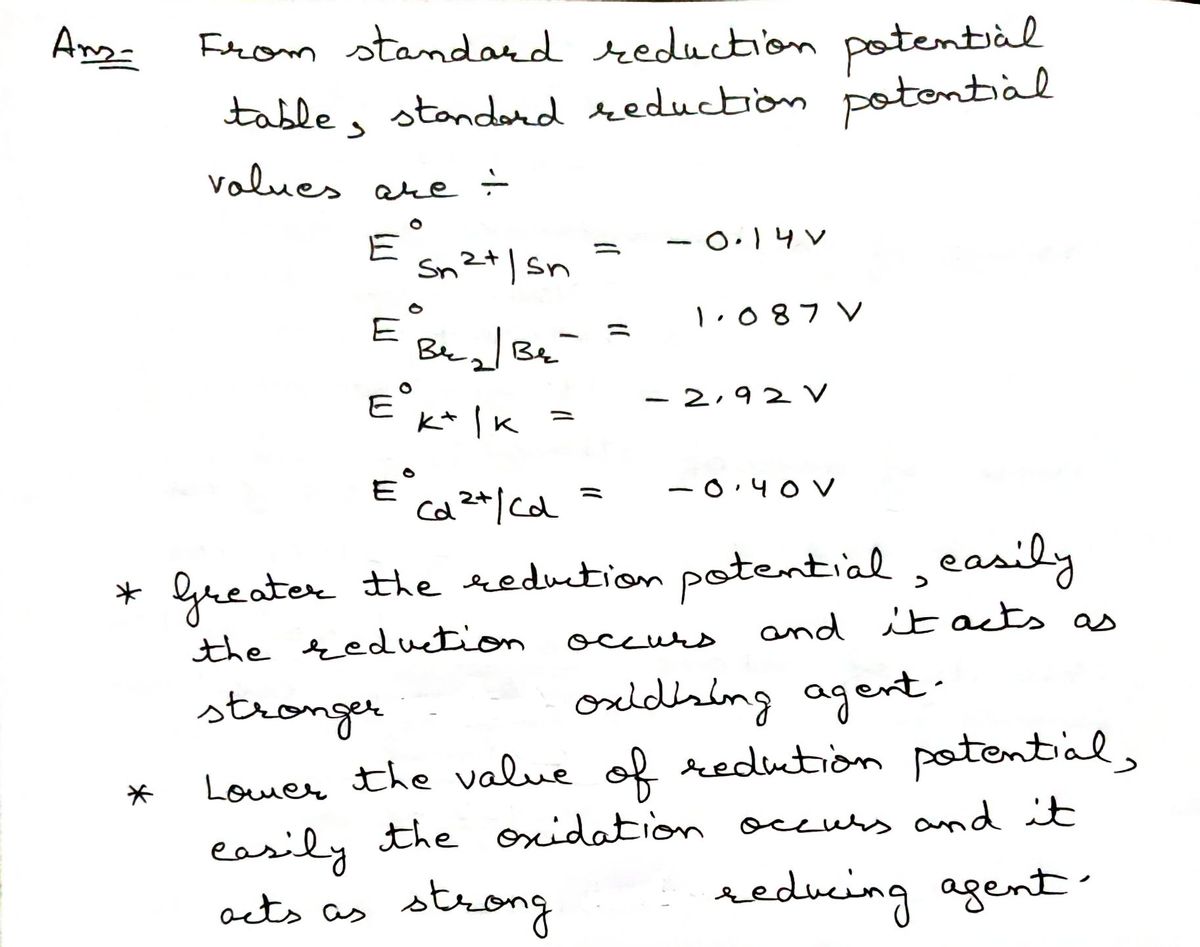 Ans- From standard reduction potential
table, standard reduction potential
values are ÷
E° Sn²⁺|Sn = - 0.14 V
E° Br₂|Br⁻ = 1.087 V
E° K⁺|K = - 2.92 V
E° Cd²⁺|Cd = - 0.40 V
* Greater the reduction potential, easily
the reduction occurs and it acts as
stronger oxidising agent.
* Lower the value of redution potential,
easily the oxidation occurs and it
acts as strong reducing agent.